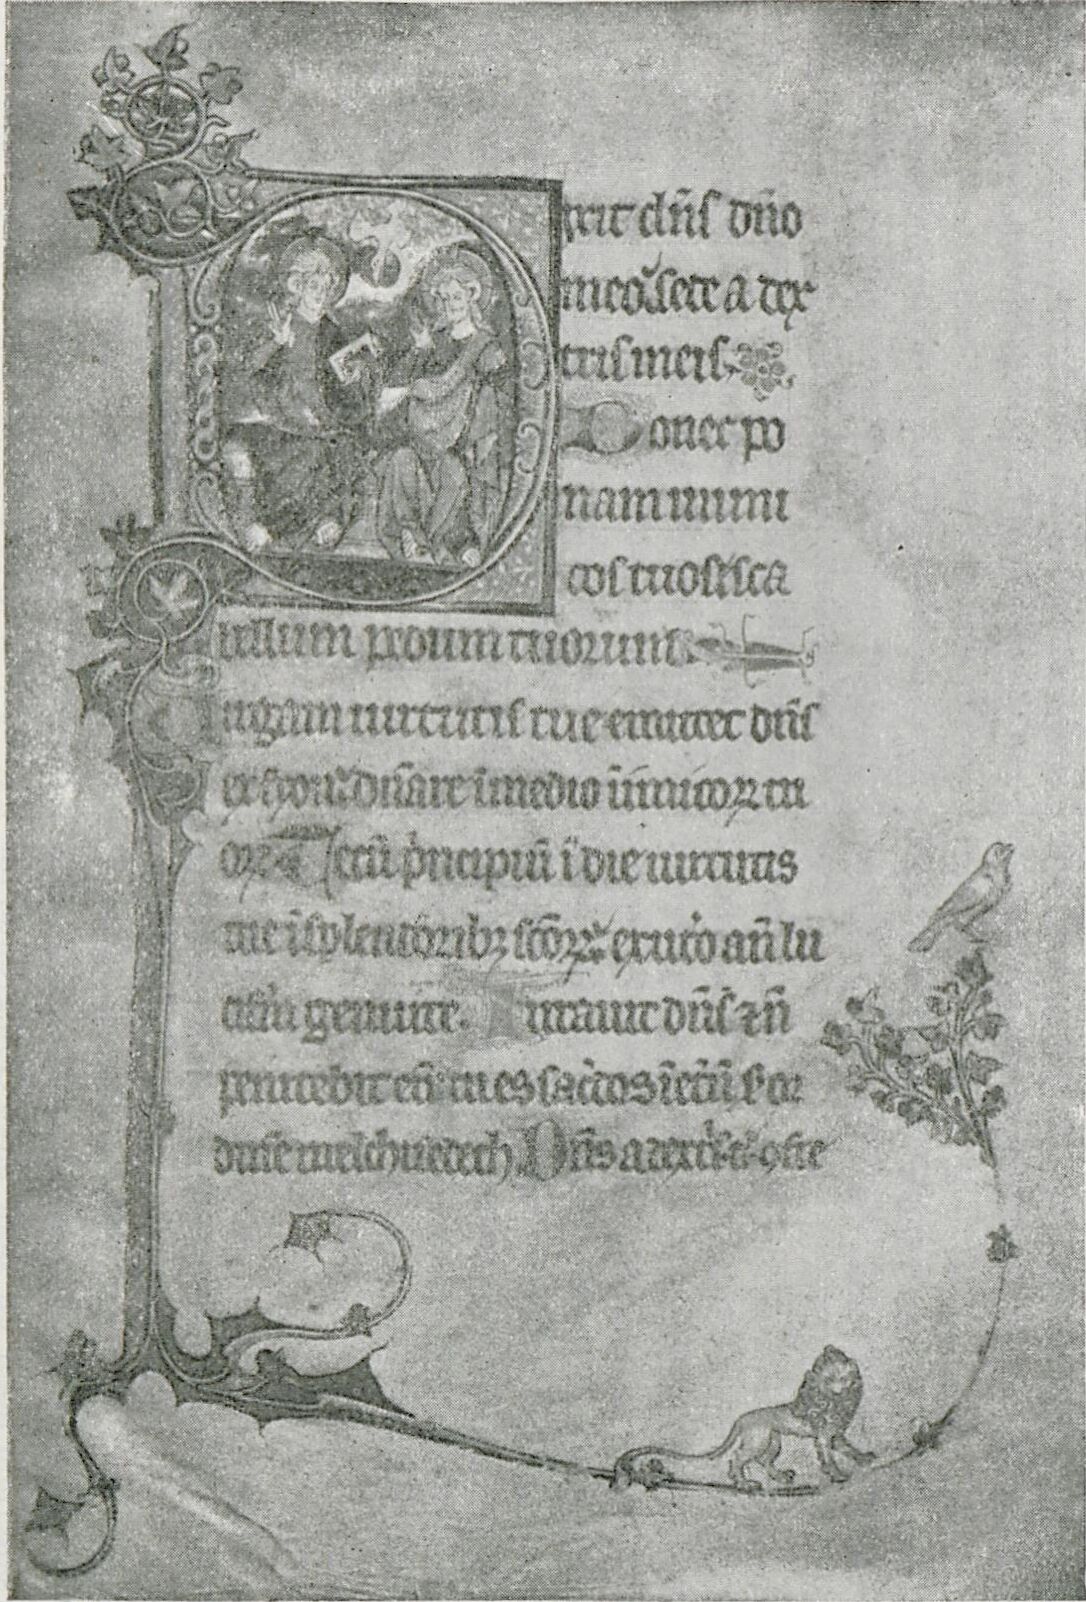 Dixit dñs dño
meo: sede a dex
tris meis.
Donec po
nam inimi
cos tuos: sca
bellum pedum tuorum.
Uirgam uirtutis tue emittet dñs
ex syon: dñare ĩ medio inimicoꝝ tu
oꝝ Tecũ p̃ncipiũ ĩ die uirtutis
tue ĩ splendoribꝫ scõꝝ: ex utõ añ lu
cifm̃ genui te. Iurauit dñs ⁊ ñ
penitebit eũ: tu es sac̃dos ĩ et̃nũ s̃ or
dinẽ melchisedech Dñs a dext̃s t̃s ꝯfre